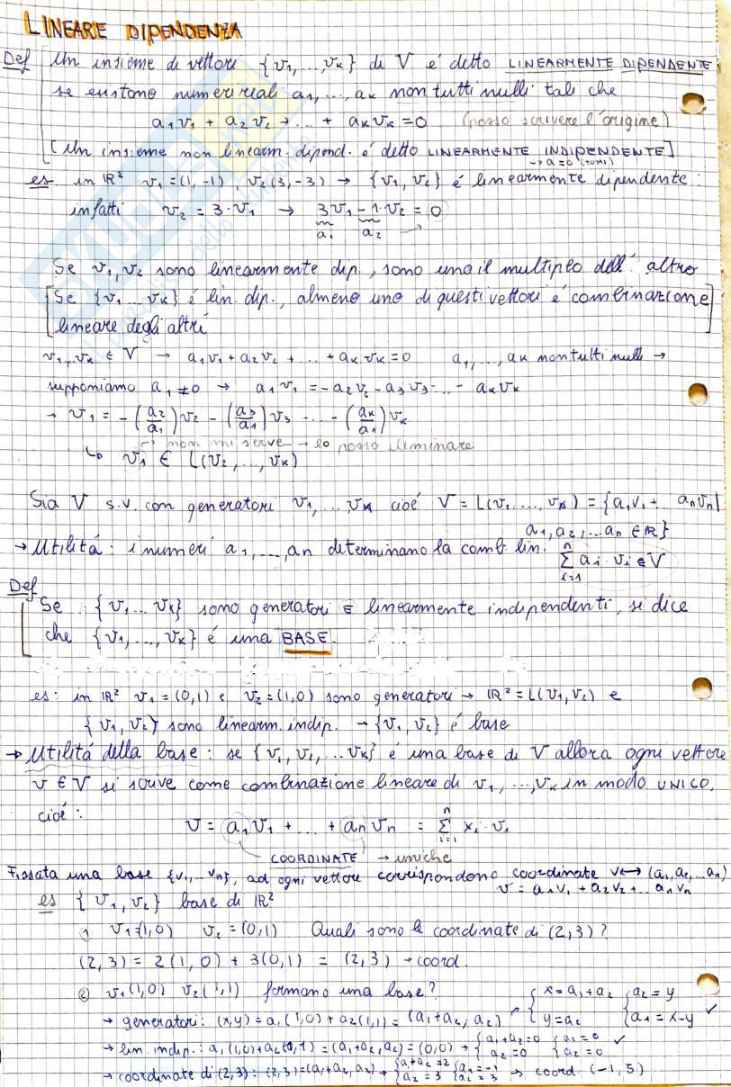 LINEARE DIPENDENZA
Def Un insieme di vettori {v₁,...,vₖ} di V é detto LINEARMENTE DIPENDENTE
se esistono numeri reali a₁,...,aₖ non tutti nulli tali che
a₁v₁ + a₂v₂ + ... + aₖvₖ = 0 (posso scrivere l'origine)
[Un insieme non linearm. dipend. é detto LINEARMENTE INDIPENDENTE]
→ a=0 (tutti)
es in ℝ² v₁=(1,-1), v₂(3,-3) → {v₁, v₂} é linearmente dipendente:
infatti v₂ = 3·v₁ → 3v₁ - 1·v₂ = 0
a₁ a₂
Se v₁,v₂ sono linearmente dip., sono uno il multiplo dell'altro
[Se {v₁...vₖ} é lin. dip., almeno uno di questi vettori é combinazione
lineare degli altri]
v₁,vₖ ∈ V → a₁v₁+a₂v₂+...+aₖvₖ=0 a₁,...,aₖ non tutti nulli →
supponiamo a₁≠0 → a₁v₁ = -a₂v₂-a₃v₃-...-aₖvₖ
→ v₁ = -(a₂/a₁)v₂ - (a₃/a₁)v₃ ... -(aₖ/a₁)vₖ
→ non mi serve → lo posso eliminare
↳ v₁ ∈ L(v₂,...,vₖ)
Sia V s.v. con generatori v₁,...vₖ cioé V = L(v₁,...,vₖ) = {a₁v₁+...aₙvₙ|
a₁,a₂,...aₙ ∈ ℝ}
→ Utilitá: i numeri a₁,...,aₙ determinano la comb. lin. ∑ⁿᵢ₌₁ aᵢ·vᵢ ∈ V
Def
Se {v₁...vₖ} sono generatori E linearmente indipendenti, si dice
che {v₁,...,vₖ} é una BASE.
es: in ℝ² v₁=(0,1) e v₂=(1,0) sono generatori → ℝ²=L(v₁,v₂) e
{v₁,v₂} sono linearm. indip. → {v₁,v₂} é base
→ Utilitá della base: se {v₁,v₂,...vₖ} é una base di V allora ogni vettore
v ∈ V si scrive come combinazione lineare di v₁,...,vₖ in modo UNICO.
cioé:
v = a₁v₁ + ... + aₙvₙ = ∑ⁿᵢ₌₁ xᵢ·vᵢ
COORDINATE → uniche
Fissata una base {v₁,...vₙ}, ad ogni vettore corrispondono coordinate v↔(a₁,a₂,...aₙ)
v = a₁v₁+a₂v₂+...aₙvₙ
es {v₁,v₂} base di ℝ²
① v₁=(1,0) v₂=(0,1) Quali sono le coordinate di (2,3)?
(2,3) = 2(1,0) + 3(0,1) = (2,3) → coord.
② v₁(1,0) v₂(1,1) formano una base?
→ generatori: (x,y)=a₁(1,0)+a₂(1,1)=(a₁+a₂,a₂) → {x=a₁+a₂ y=a₂ {a₂=y a₁=x-y ✓
→ lin. indip.: a₁(1,0)+a₂(0,1)=(a₁+a₂,a₂)=(0,0) → {a₁+a₂=0 a₂=0 {a₁=0 a₂=0 ✓
→ coordinate di (2,3): (2,3)=(a₁+a₂,a₂) → {a₁+a₂=2 a₂=3 {a₁=-1 a₂=3 → coord. (-1,3)